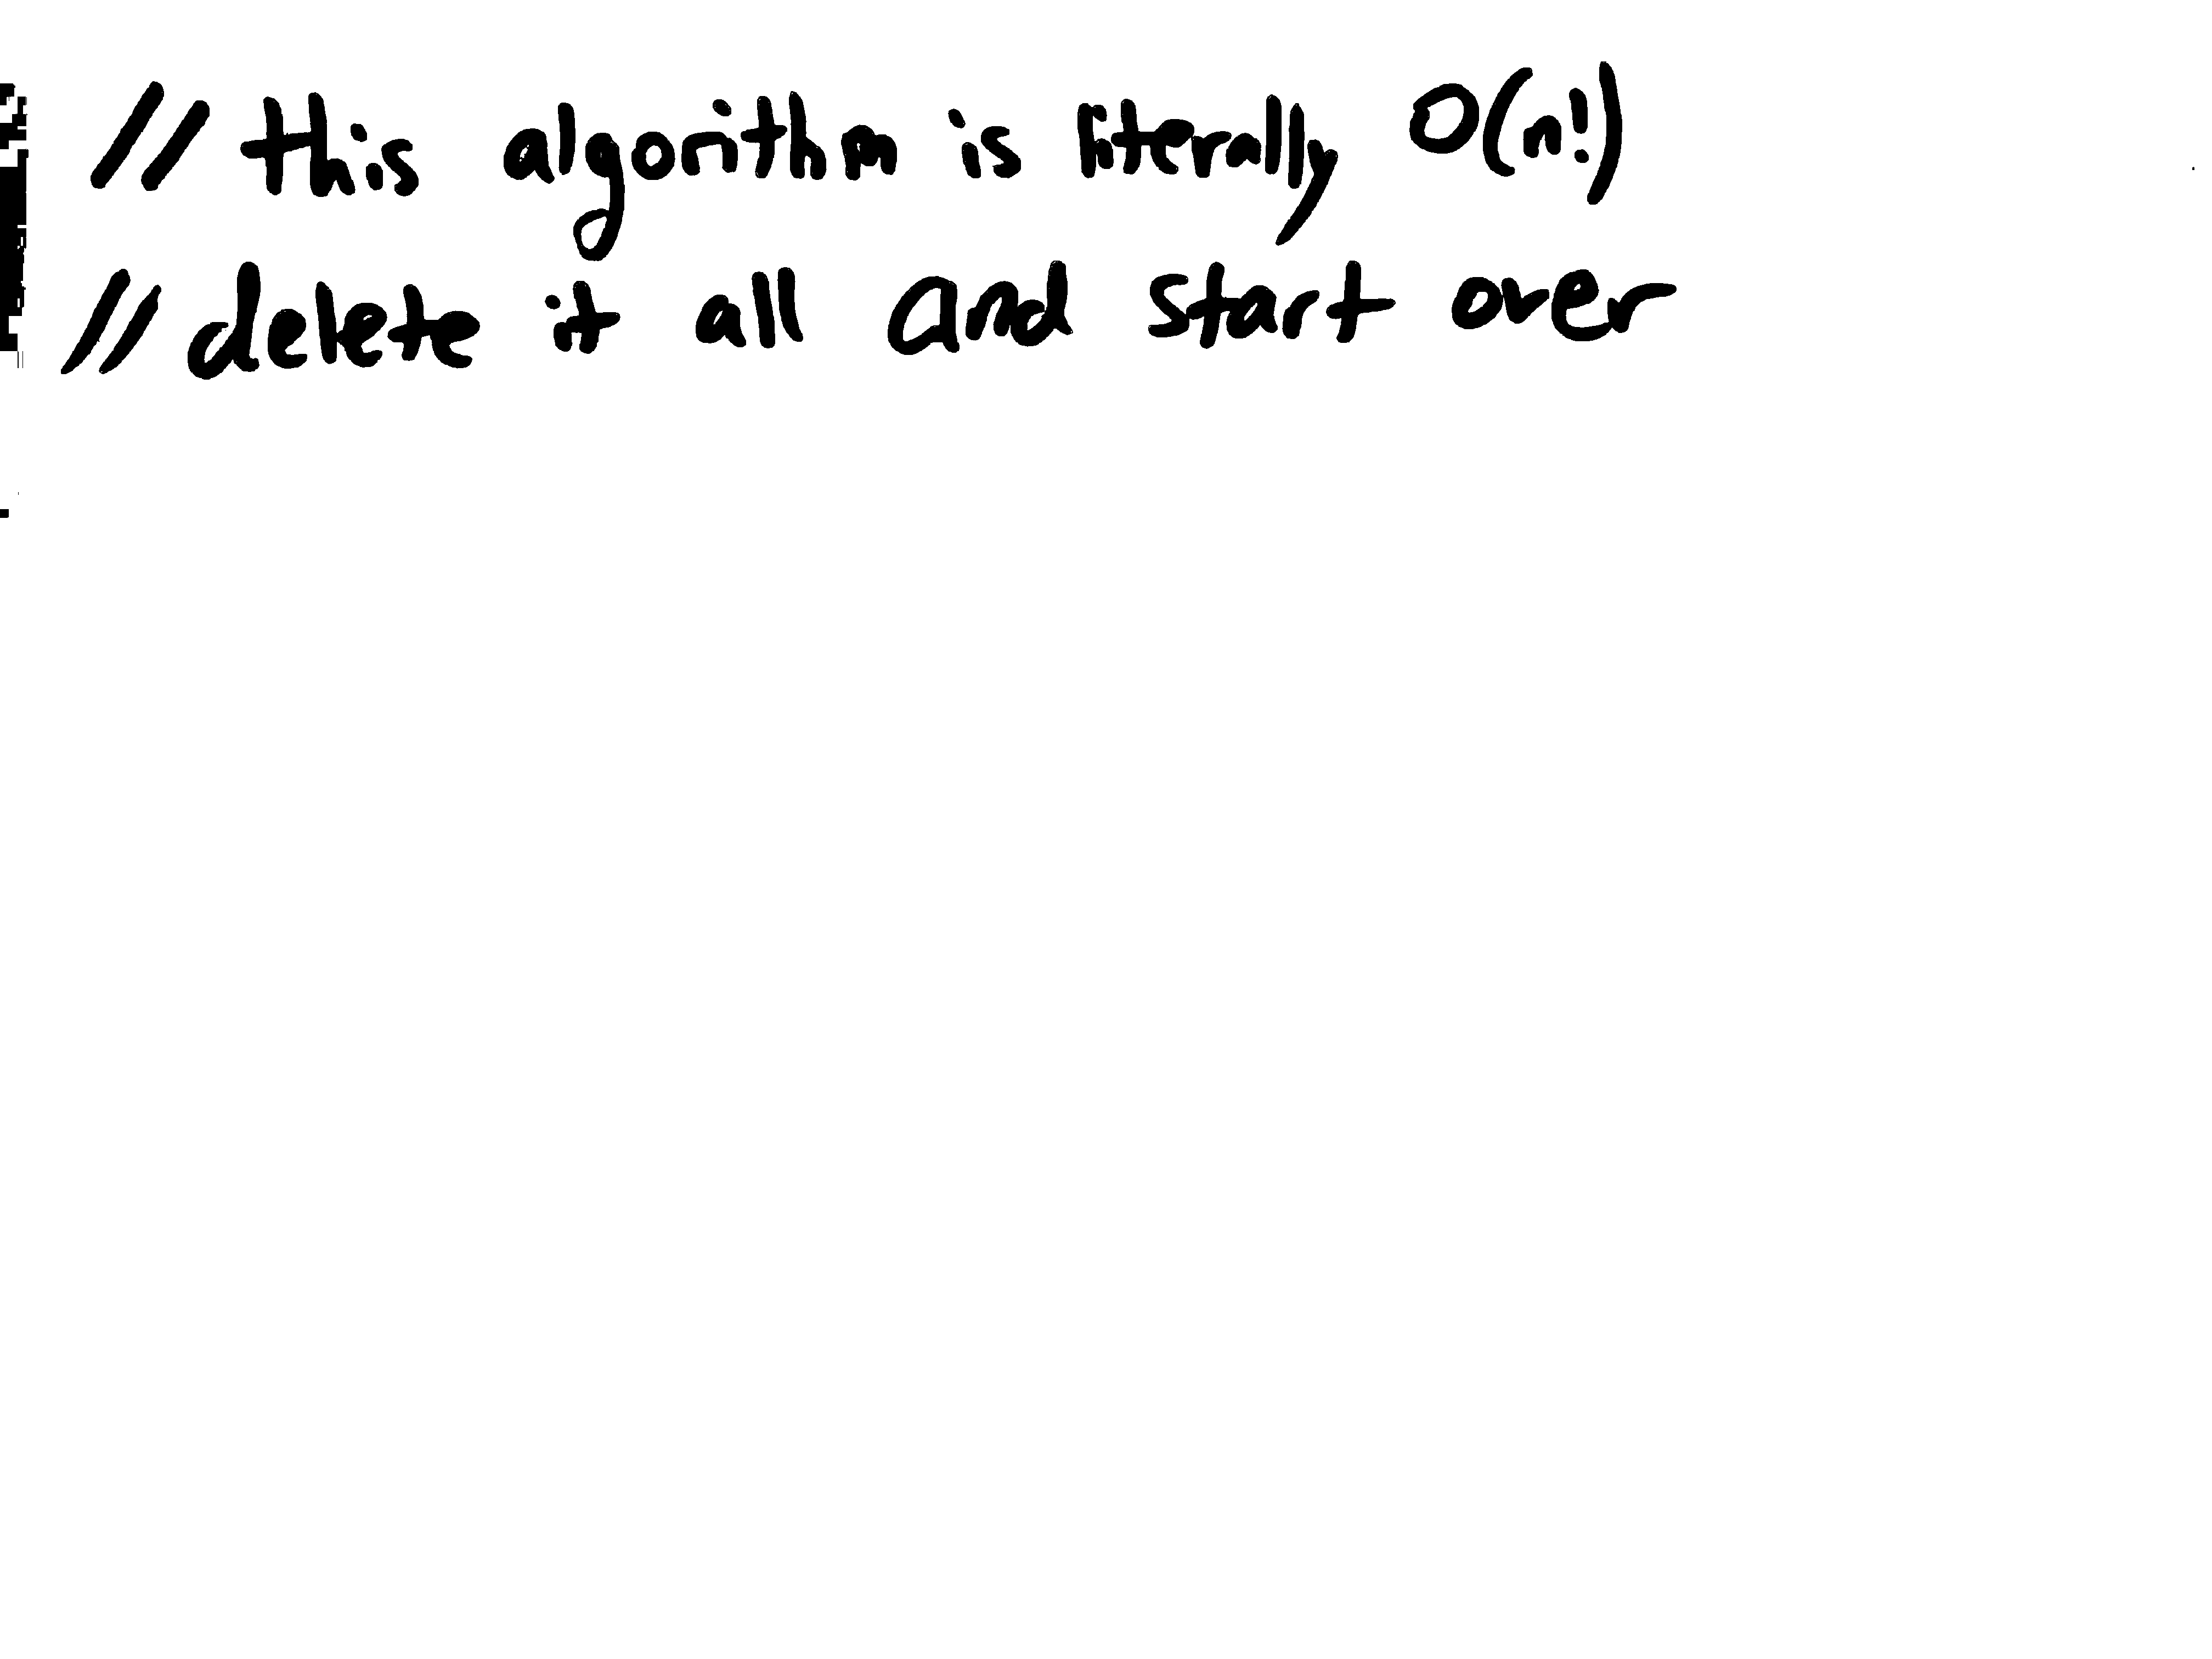 // this algorithm is literally O(n!)
// delete it all and start over